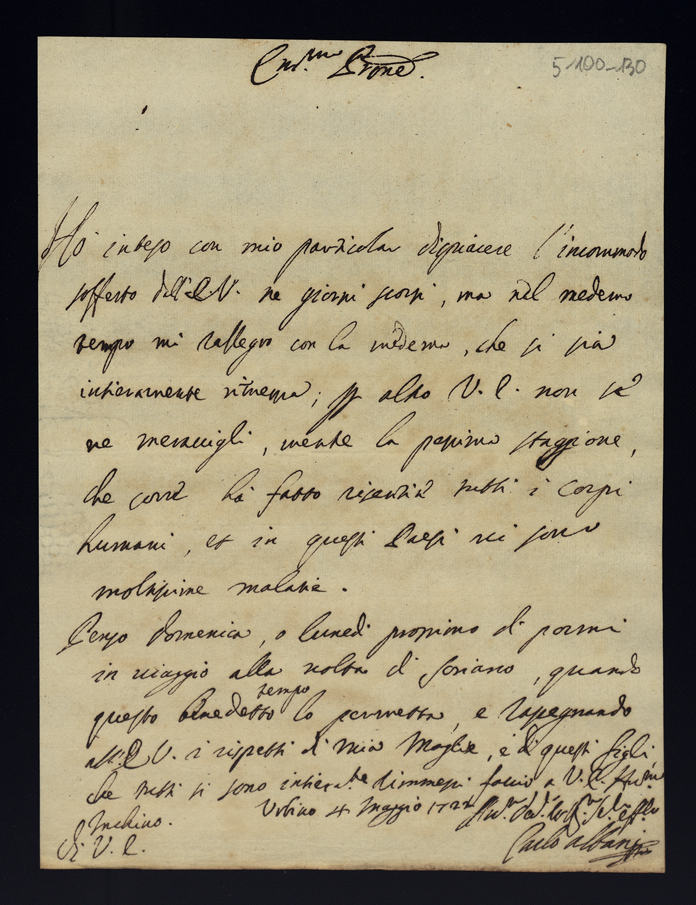 5-100-130
Em.mo Prone.
Hò inteso con mio particolar dispiacere l'incommodo
sofferto dall'E. V. ne giorni scorsi, ma nel medemo
tempo mi rallegro con la medema, che si sia
intieramente rimessa; per altro V. E. non si
ne meravigli, mentre la pessima staggione,
che corre hà fatto risentire tutti i Corpi
humani, et in questi Paesi vi sono
moltissime malatie.
Penso domenica, o lunedì prossimo di pormi
in viaggio alla volta di Soriano, quando
questo benedetto tempo lo permetta, e rassegnando
all'E. V. i rispetti di mia Moglie, e di questi figli
che tutti si sono intieram.te rimmessi faccio a V. E.
Inchino.
Urbino Maggio
di V. E.
Carlo Albani